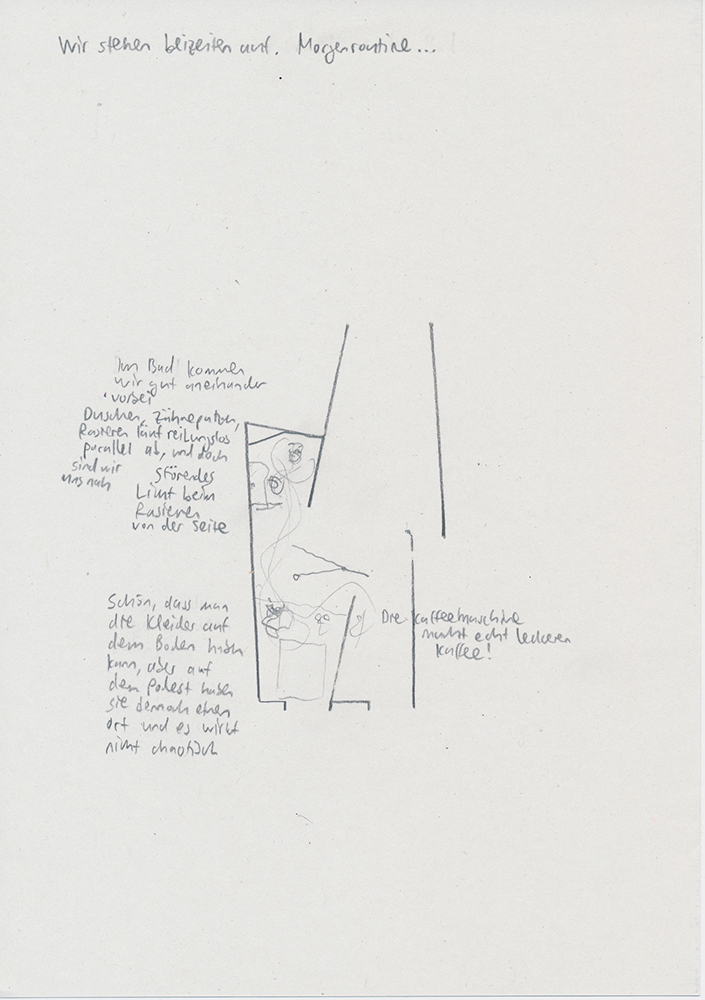 Wir stehen beizeiten auf. Morgenroutine...
Im Bad kommen
wir gut aneinander
vorbei
Duschen, Zähneputzen,
Rasieren läuft reibungslos
parallel ab, und doch
sind wir
uns nah
Störendes
Licht beim
Rasieren
von der Seite
Schön, dass man
die Kleider auf
dem Boden haben
kann, aber auf
dem Podest haben
sie dennoch einen
Ort und es wirkt
nicht chaotisch
Die Kaffeemaschine
macht echt leckeren
Kaffee!